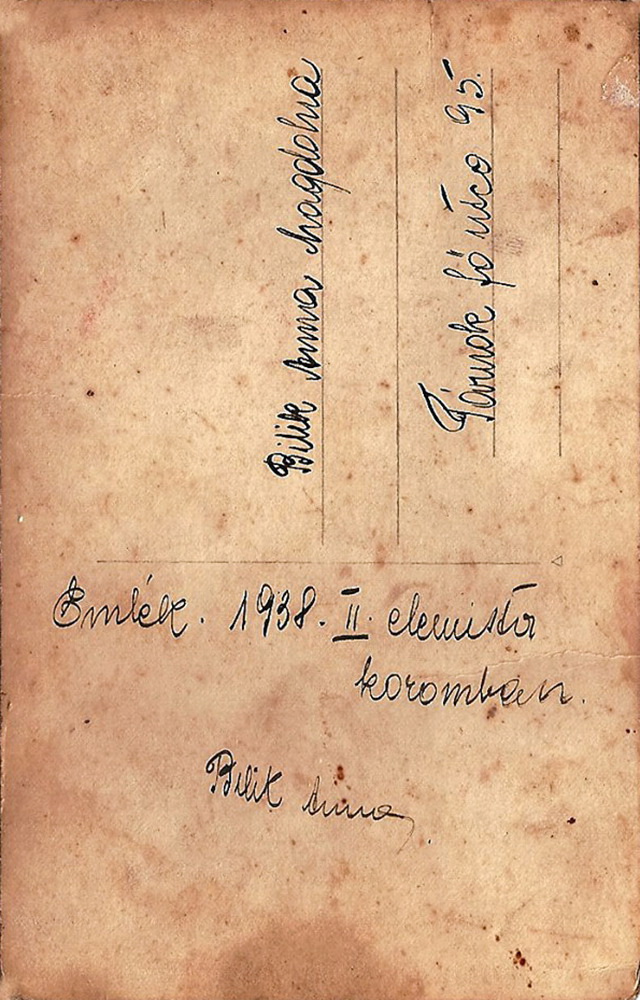 Bilik Anna Magdolna
Tárnok fő úcco 95.
Emlék. 1938. II. elemista
koromban.
Bilik Anna